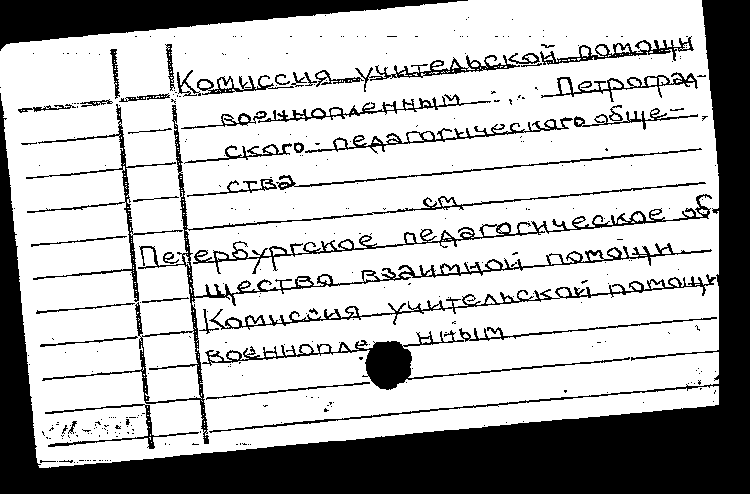 Комиссия учительской помощи
военнопленным Петроград-
ского педагогического обще-
ства
см.
Петербургское педагогическое об-
щество взаимной помощи.
Комиссия учительской помощи
военнопленным